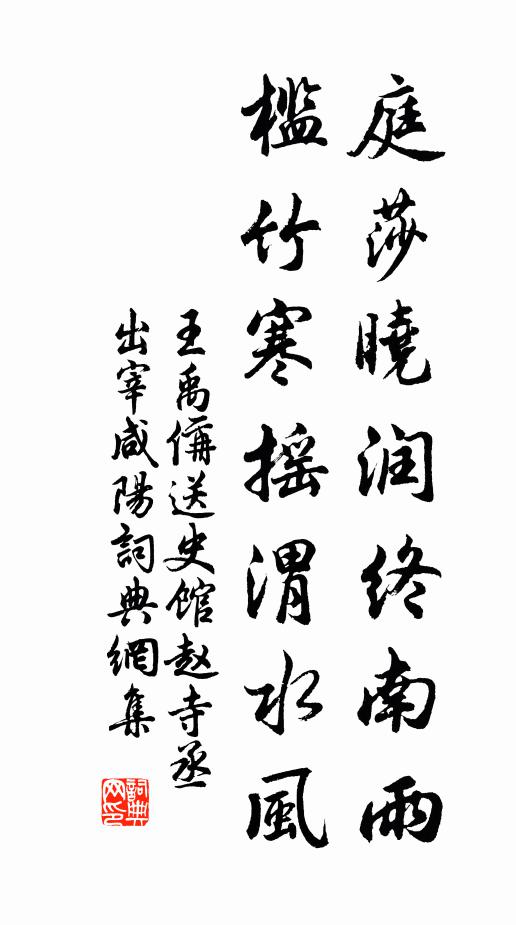 庭莎曉润终南雨
槛竹寒摇渭水風
王禹偁送史馆赵寺丞
出宰咸陽詞典網集
詞典
网印